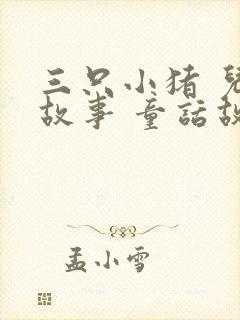 三只小猪 兒
故事 童話故
孟小雪